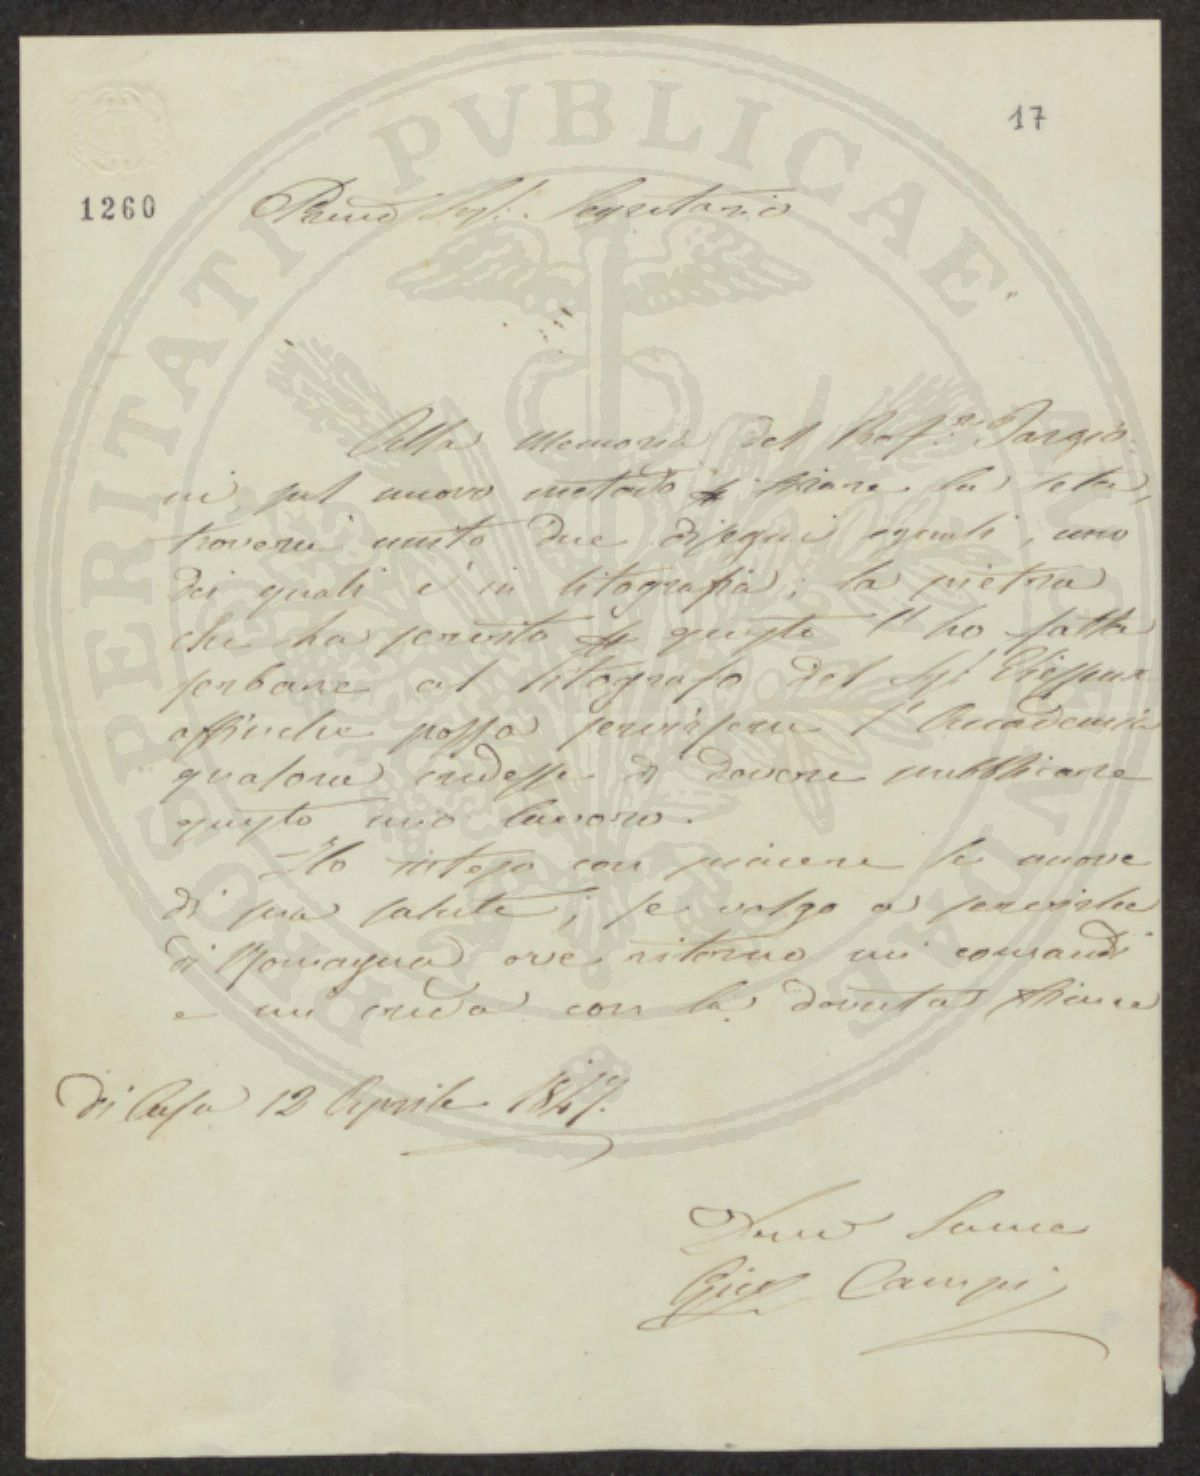 17
1260
Sig.r Segretario
Alla Memoria del Prof.r Targio-
ni, sul nuovo metodo di filare la seta,
troverà unito due disegni eguali, uno
dei quali è in litografia; la pietra
che ha servito questo l'ho fatta
serbare al litografo del Sig.r Vieusseux
affinché possa servirsene l'Accademia
qualora credesse di dovere pubblicare
questo mio lavoro.
Ho inteso con piacere le nuove
di sua salute; se valgo a servirla
di Romagna ove ritorno mi comandi
e mi creda con la dovuta stima
di Casa 12 Aprile 1847.
Devmo Servo
Campi
PERITATI PVBLICAE